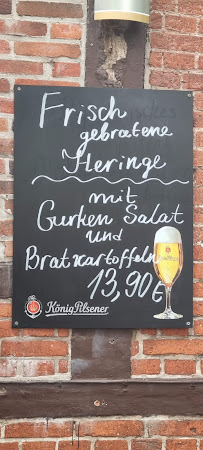 Frisch
gebratene
Heringe
mit
Gurken Salat
und
Bratkartoffeln
13,90€
König Pilsener